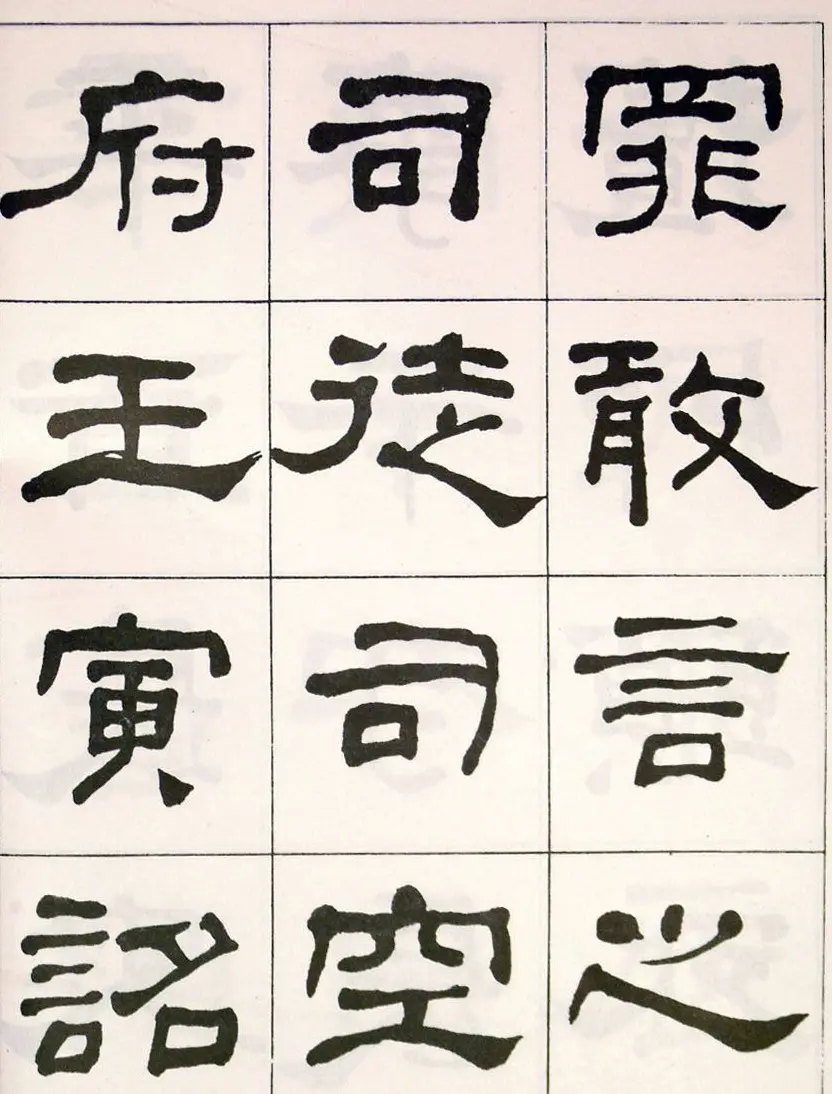 罪敢言之
司徒司空
府壬寅詔